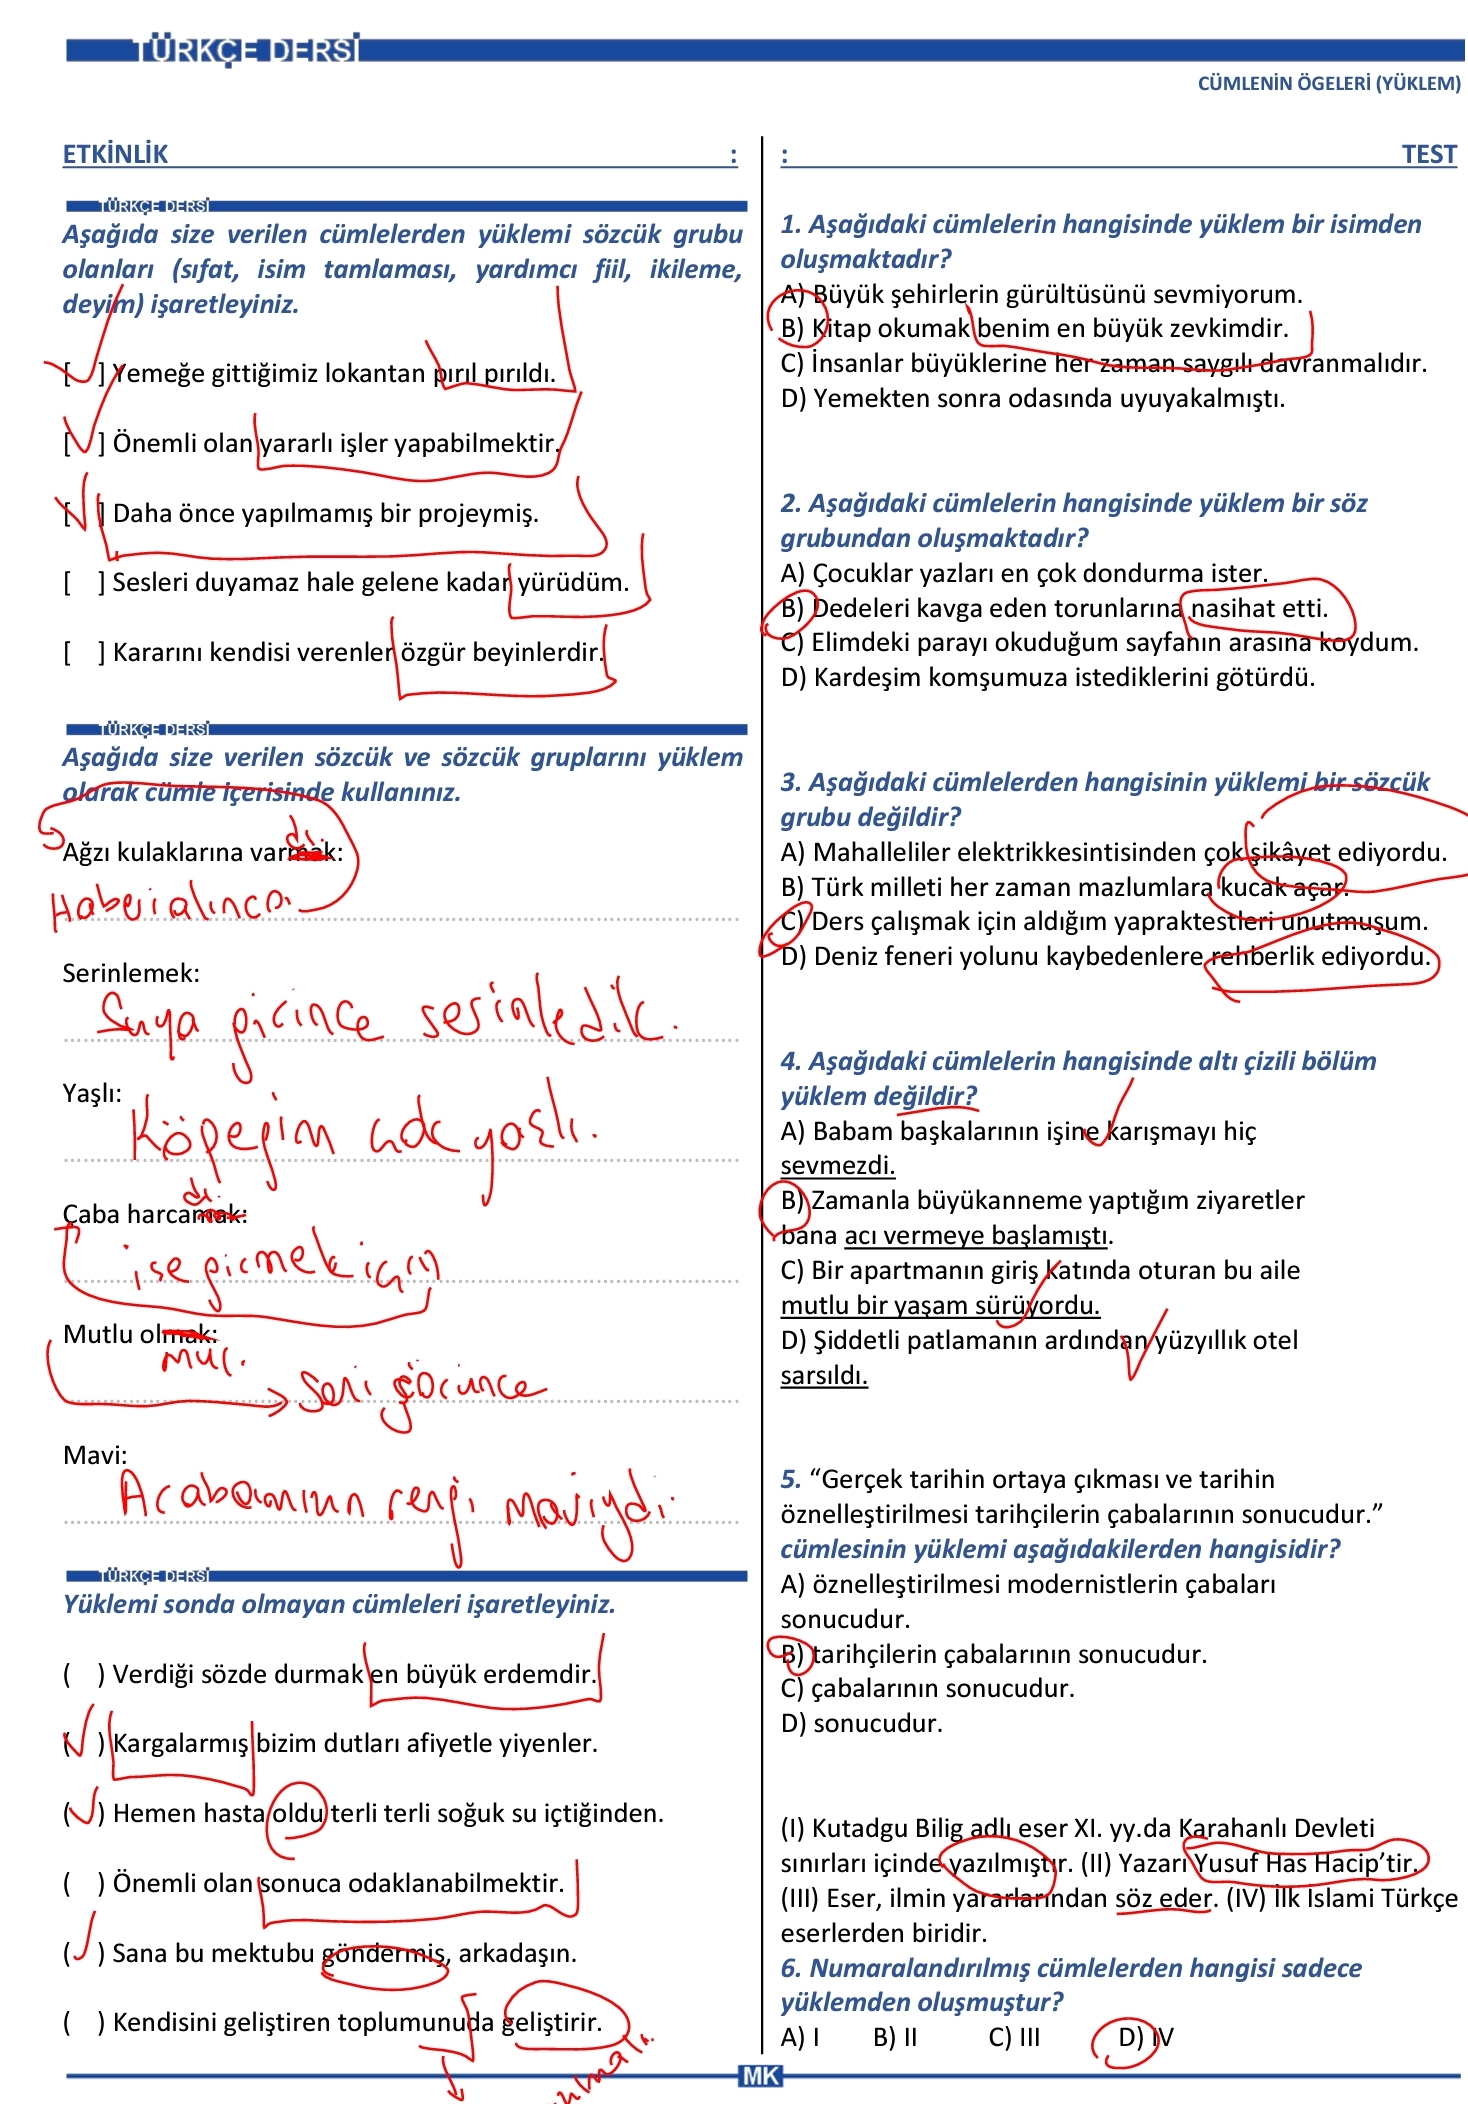 TÜRKÇE DERSİ
CÜMLENİN ÖGELERİ (YÜKLEM)
ETKİNLİK :
TÜRKÇE DERSİ
Aşağıda size verilen cümlelerden yüklemi sözcük grubu
olanları (sıfat, isim tamlaması, yardımcı fiil, ikileme,
deyim) işaretleyiniz.
[ ] Yemeğe gittiğimiz lokantan pırıl pırıldı.
[ ] Önemli olan yararlı işler yapabilmektir.
[ ] Daha önce yapılmamış bir projeymiş.
[ ] Sesleri duyamaz hale gelene kadar yürüdüm.
[ ] Kararını kendisi verenler özgür beyinlerdir.
TÜRKÇE DERSİ
Aşağıda size verilen sözcük ve sözcük gruplarını yüklem
olarak cümle içerisinde kullanınız.
dı.
Ağzı kulaklarına varmak:
Haberi alınca
Serinlemek:
Suya girince serinledik.
Yaşlı:
Köpeğim çok yaşlı.
dı.
Çaba harcamak:
işe girmek için
Mutlu olmak:
muş.
Seni görünce
Mavi:
Arabamının rengi maviydi.
TÜRKÇE DERSİ
Yüklemi sonda olmayan cümleleri işaretleyiniz.
( ) Verdiği sözde durmak en büyük erdemdir.
( ) Kargalarmış bizim dutları afiyetle yiyenler.
( ) Hemen hasta oldu terli terli soğuk su içtiğinden.
( ) Önemli olan sonuca odaklanabilmektir.
( ) Sana bu mektubu göndermiş, arkadaşın.
( ) Kendisini geliştiren toplumunuda geliştirir.
: TEST
1. Aşağıdaki cümlelerin hangisinde yüklem bir isimden
oluşmaktadır?
A) Büyük şehirlerin gürültüsünü sevmiyorum.
B) Kitap okumak benim en büyük zevkimdir.
C) İnsanlar büyüklerine her zaman saygılı davranmalıdır.
D) Yemekten sonra odasında uyuyakalmıştı.
2. Aşağıdaki cümlelerin hangisinde yüklem bir söz
grubundan oluşmaktadır?
A) Çocuklar yazları en çok dondurma ister.
B) Dedeleri kavga eden torunlarına nasihat etti.
C) Elimdeki parayı okuduğum sayfanın arasına koydum.
D) Kardeşim komşumuza istediklerini götürdü.
3. Aşağıdaki cümlelerden hangisinin yüklemi bir sözcük
grubu değildir?
A) Mahalleliler elektrikkesintisinden çok şikâyet ediyordu.
B) Türk milleti her zaman mazlumlara kucak açar.
C) Ders çalışmak için aldığım yapraktestleri unutmuşum.
D) Deniz feneri yolunu kaybedenlere rehberlik ediyordu.
4. Aşağıdaki cümlelerin hangisinde altı çizili bölüm
yüklem değildir?
A) Babam başkalarının işine karışmayı hiç
sevmezdi.
B) Zamanla büyükanneme yaptığım ziyaretler
bana acı vermeye başlamıştı.
C) Bir apartmanın giriş katında oturan bu aile
mutlu bir yaşam sürüyordu.
D) Şiddetli patlamanın ardından yüzyıllık otel
sarsıldı.
5. “Gerçek tarihin ortaya çıkması ve tarihin
öznelleştirilmesi tarihçilerin çabalarının sonucudur.”
cümlesinin yüklemi aşağıdakilerden hangisidir?
A) öznelleştirilmesi modernistlerin çabaları
sonucudur.
B) tarihçilerin çabalarının sonucudur.
C) çabalarının sonucudur.
D) sonucudur.
(I) Kutadgu Bilig adlı eser XI. yy.da Karahanlı Devleti
sınırları içinde yazılmıştır. (II) Yazarı Yusuf Has Hacip’tir.
(III) Eser, ilmin yararlarından söz eder. (IV) İlk İslami Türkçe
eserlerden biridir.
6. Numaralandırılmış cümlelerden hangisi sadece
yüklemden oluşmuştur?
A) I B) II C) III D) IV
MK